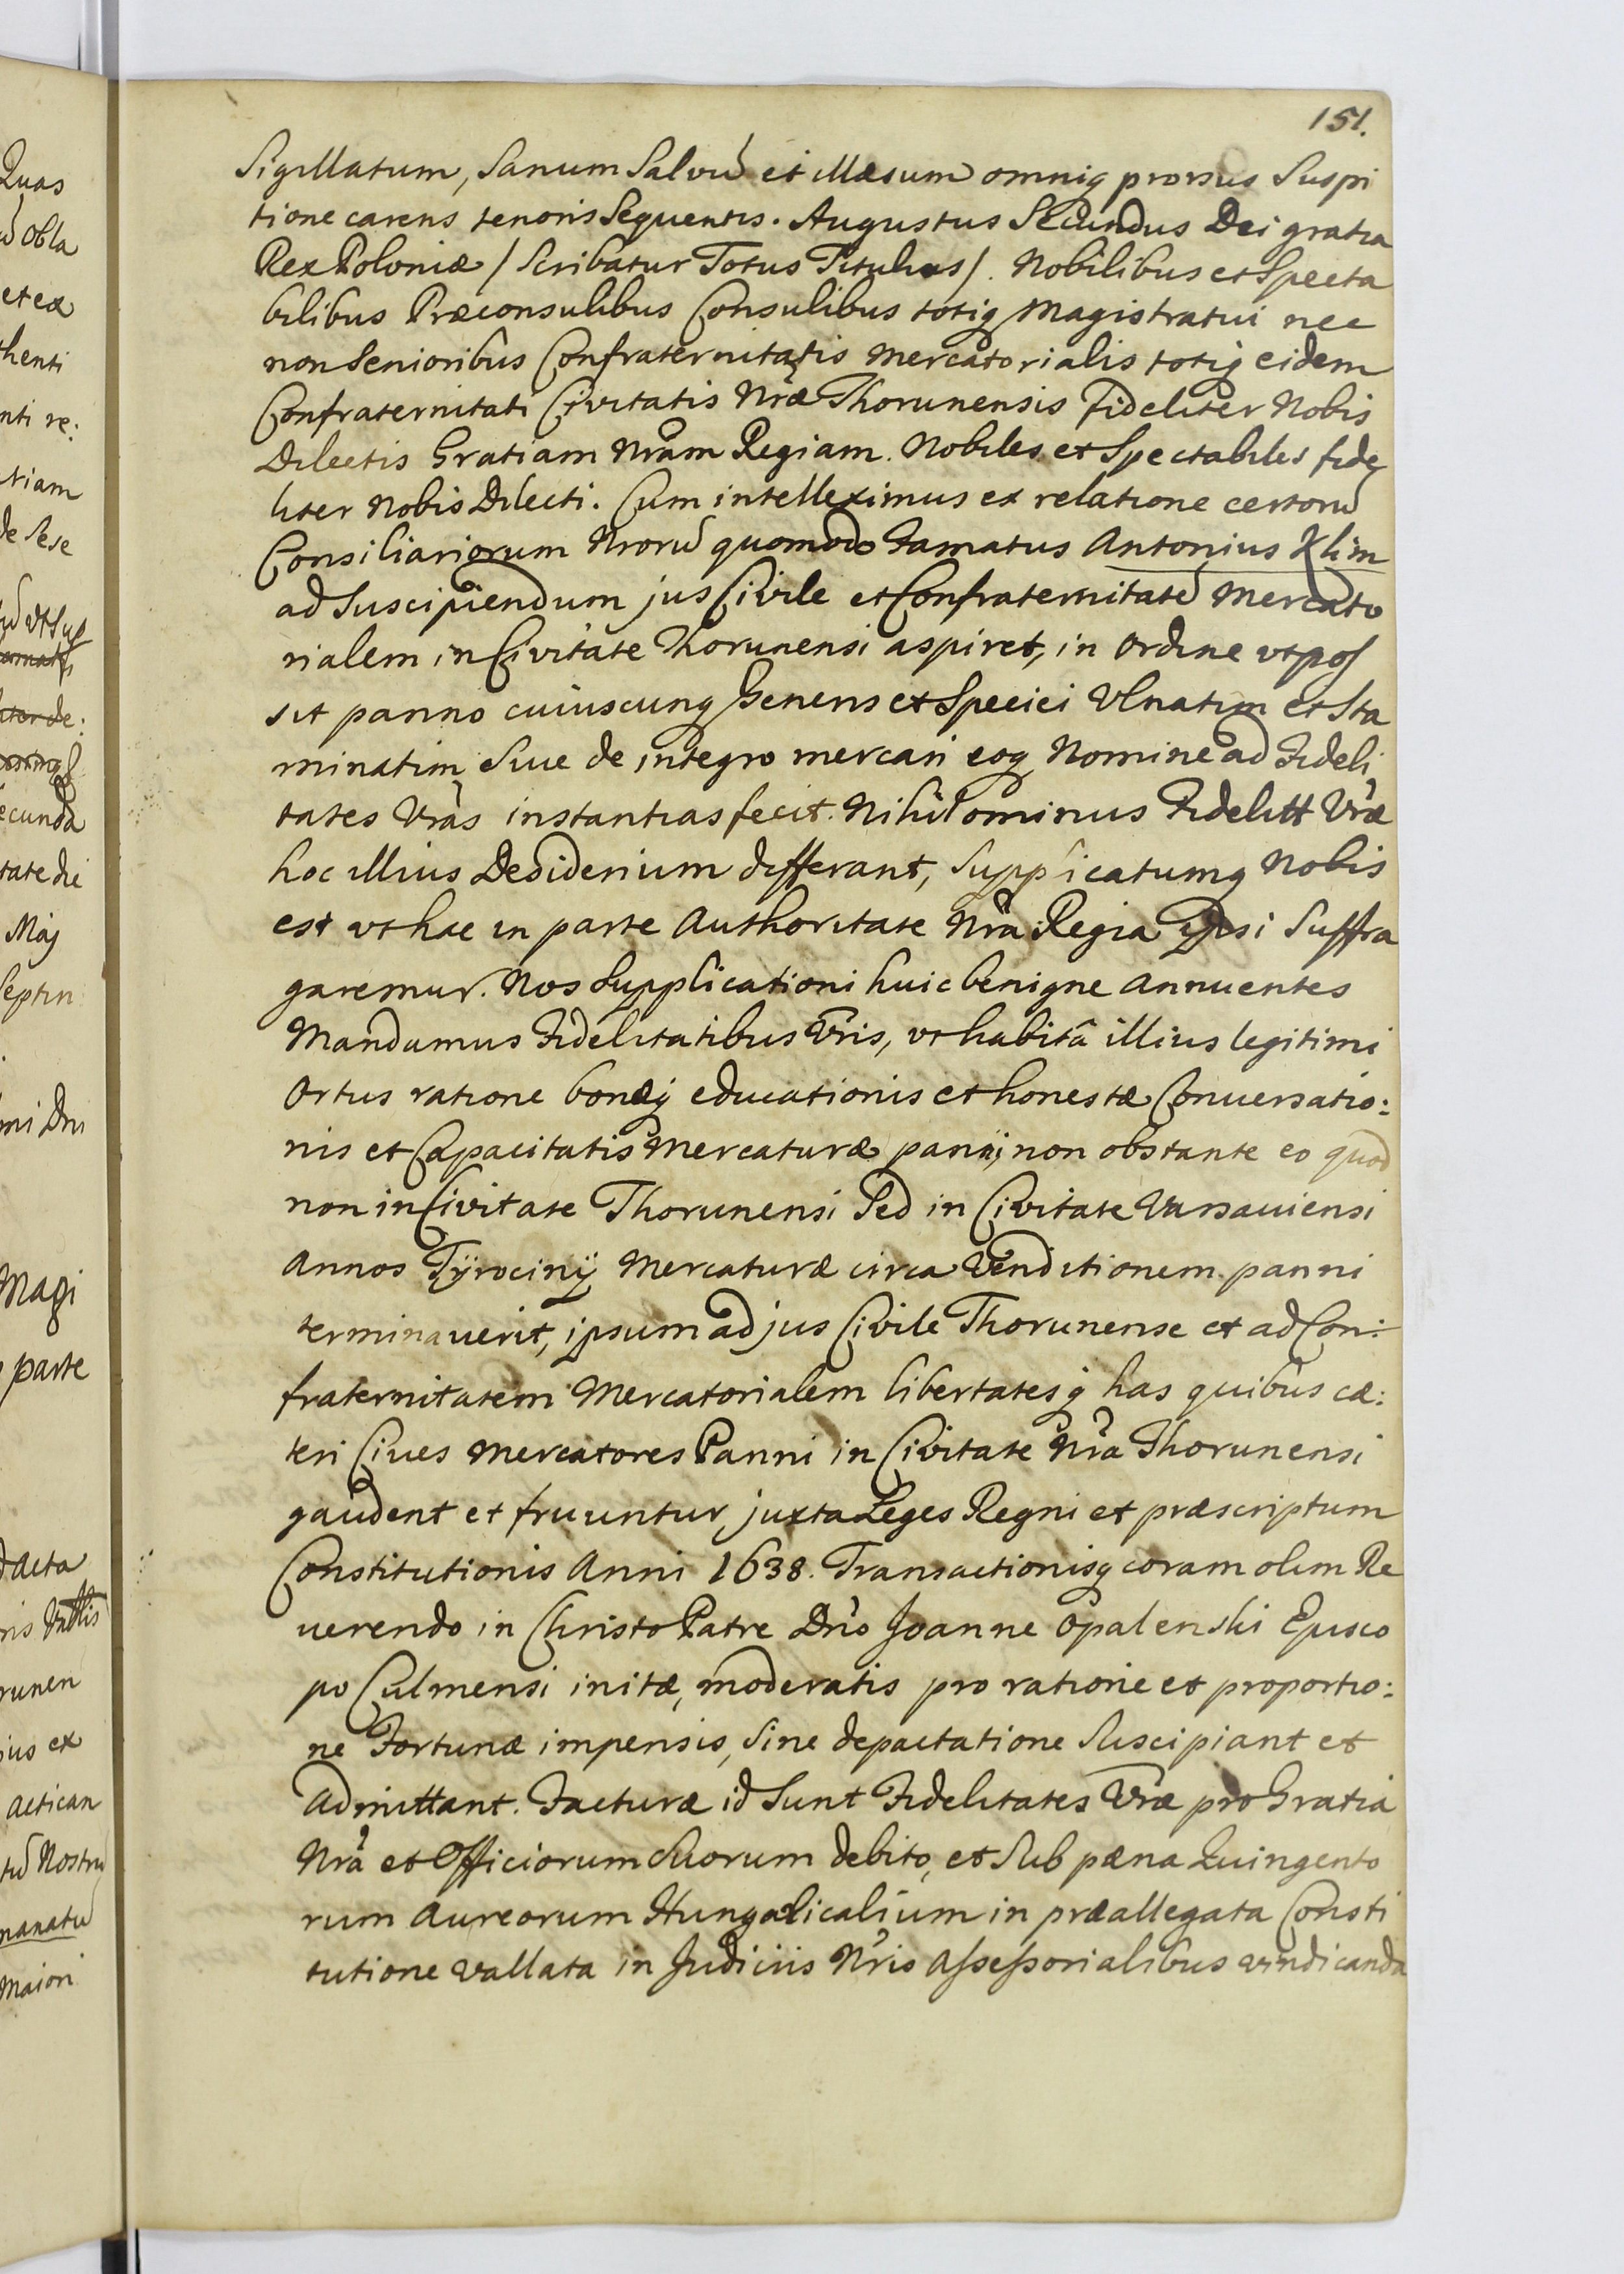 151.
Sigillatum, Sanum Salvũ et illæsum omniq prorsus Suspi
tione carens tenoris Sequentis. Augustus Secundus Dei gratia
Rex Poloniæ /Scribatur Totus Titulus/. Nobilibus et Specta
bilibus Præconsulibus Consulibus totiq Magistratui nec
non Senioribus Confraternitatis Mercatorialis totiq eidem
Confraternitati Civitatis Nræ Thorunensis Fideliter Nobis
Dilectis Gratiam Nram Regiam. Nobiles et Spectabiles fide
liter Nobis Dilecti. Cum intelleximus ex relatione certorũ
Consiliariorum Nrorũ quomodo Famatus Antonius Klim
ad Suscipiendum jus Civile et Confraternitatẽ Mercato
rialem in Civitate Thorunensi aspiret, in Ordine vt pos
sit panno cuiuscunq Generis et Speciei Vlnatim et Sta
minatim Siue de integro mercari eoq Nomine ad Fideli
tates Vras instantias fecit. Nihilominus Fidelitt Vræ
hoc illius Desiderium differant, Supplicatumq Nobis
est vt hac in parte Authoritate Nra Regia ipsi Suffra
garemur. Nos Supplicationi huic benigne Annuentes
Mandamus Fidelitatibus Vris, vt habitâ illius legitimi
Ortus ratione bonæq educationis et honestæ Conuersatio:
nis et Capacitatis Mercaturæ panni, non obstante eo quod
non in Civitate Thorunensi Sed in Civitate Varsauiensi
Annos Tÿrocinÿ Mercaturæ circa Venditionem panni
terminauerit, ipsum ad jus Civile Thorunense et ad Con:
fraternitatem Mercatorialem libertatesq has quibus cæ:
teri Ciues Mercatores Panni in Civitate Nra Thorunensi
gaudent et fruuntur, juxta Leges Regni et præscriptum
Constitutionis Anni 1638. Transactionisq coram olim Re
uerendo in Christo Patre Dno Joanne Opalenski Episco
po Culmensi initæ, moderatis pro ratione et proportio:
ne Fortunæ impensis, Sine depactatione Suscipiant et
Admittant. Facturæ id Sunt Fidelitates Vræ pro Gratia
Nra et Officiorum Suorum debito, et Sub pæna Quingento
rum Aureorum Hungaricalium in præallegata Consti
tutione vallata in Judiciis Nris Assessorialibus vindicanda
Quas
ũ obla
et ex
thenti
nti re:
de Sese
ecunda
tate die
Maj
Septin
Magi
parte
Acta
runen
ius ex
actican
tũ Nostru
manatũ
maiori